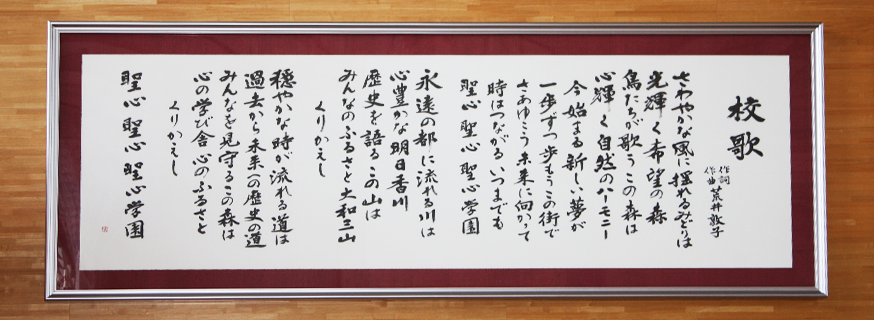 校歌
作詞
作曲 荒井敦子
さわやかな風に揺れるみどりは
光輝く希望の森
鳥たちが歌うこの森は
心輝く自然のハーモニー
今始まる新しい夢が
一歩ずつ歩もうこの街で
さあゆこう未来に向かって
時はつながるいつまでも
聖心聖心聖心学園
永遠の都に流れる川は
心豊かな明日香川
歴史を語るこの山は
みんなのふるさと大和三山
くりかえし
穏やかな時が流れる道は
過去から未来への歴史の道
みんなを見守るこの森は
心の学び舎心のふるさと
くりかえし
聖心聖心聖心学園